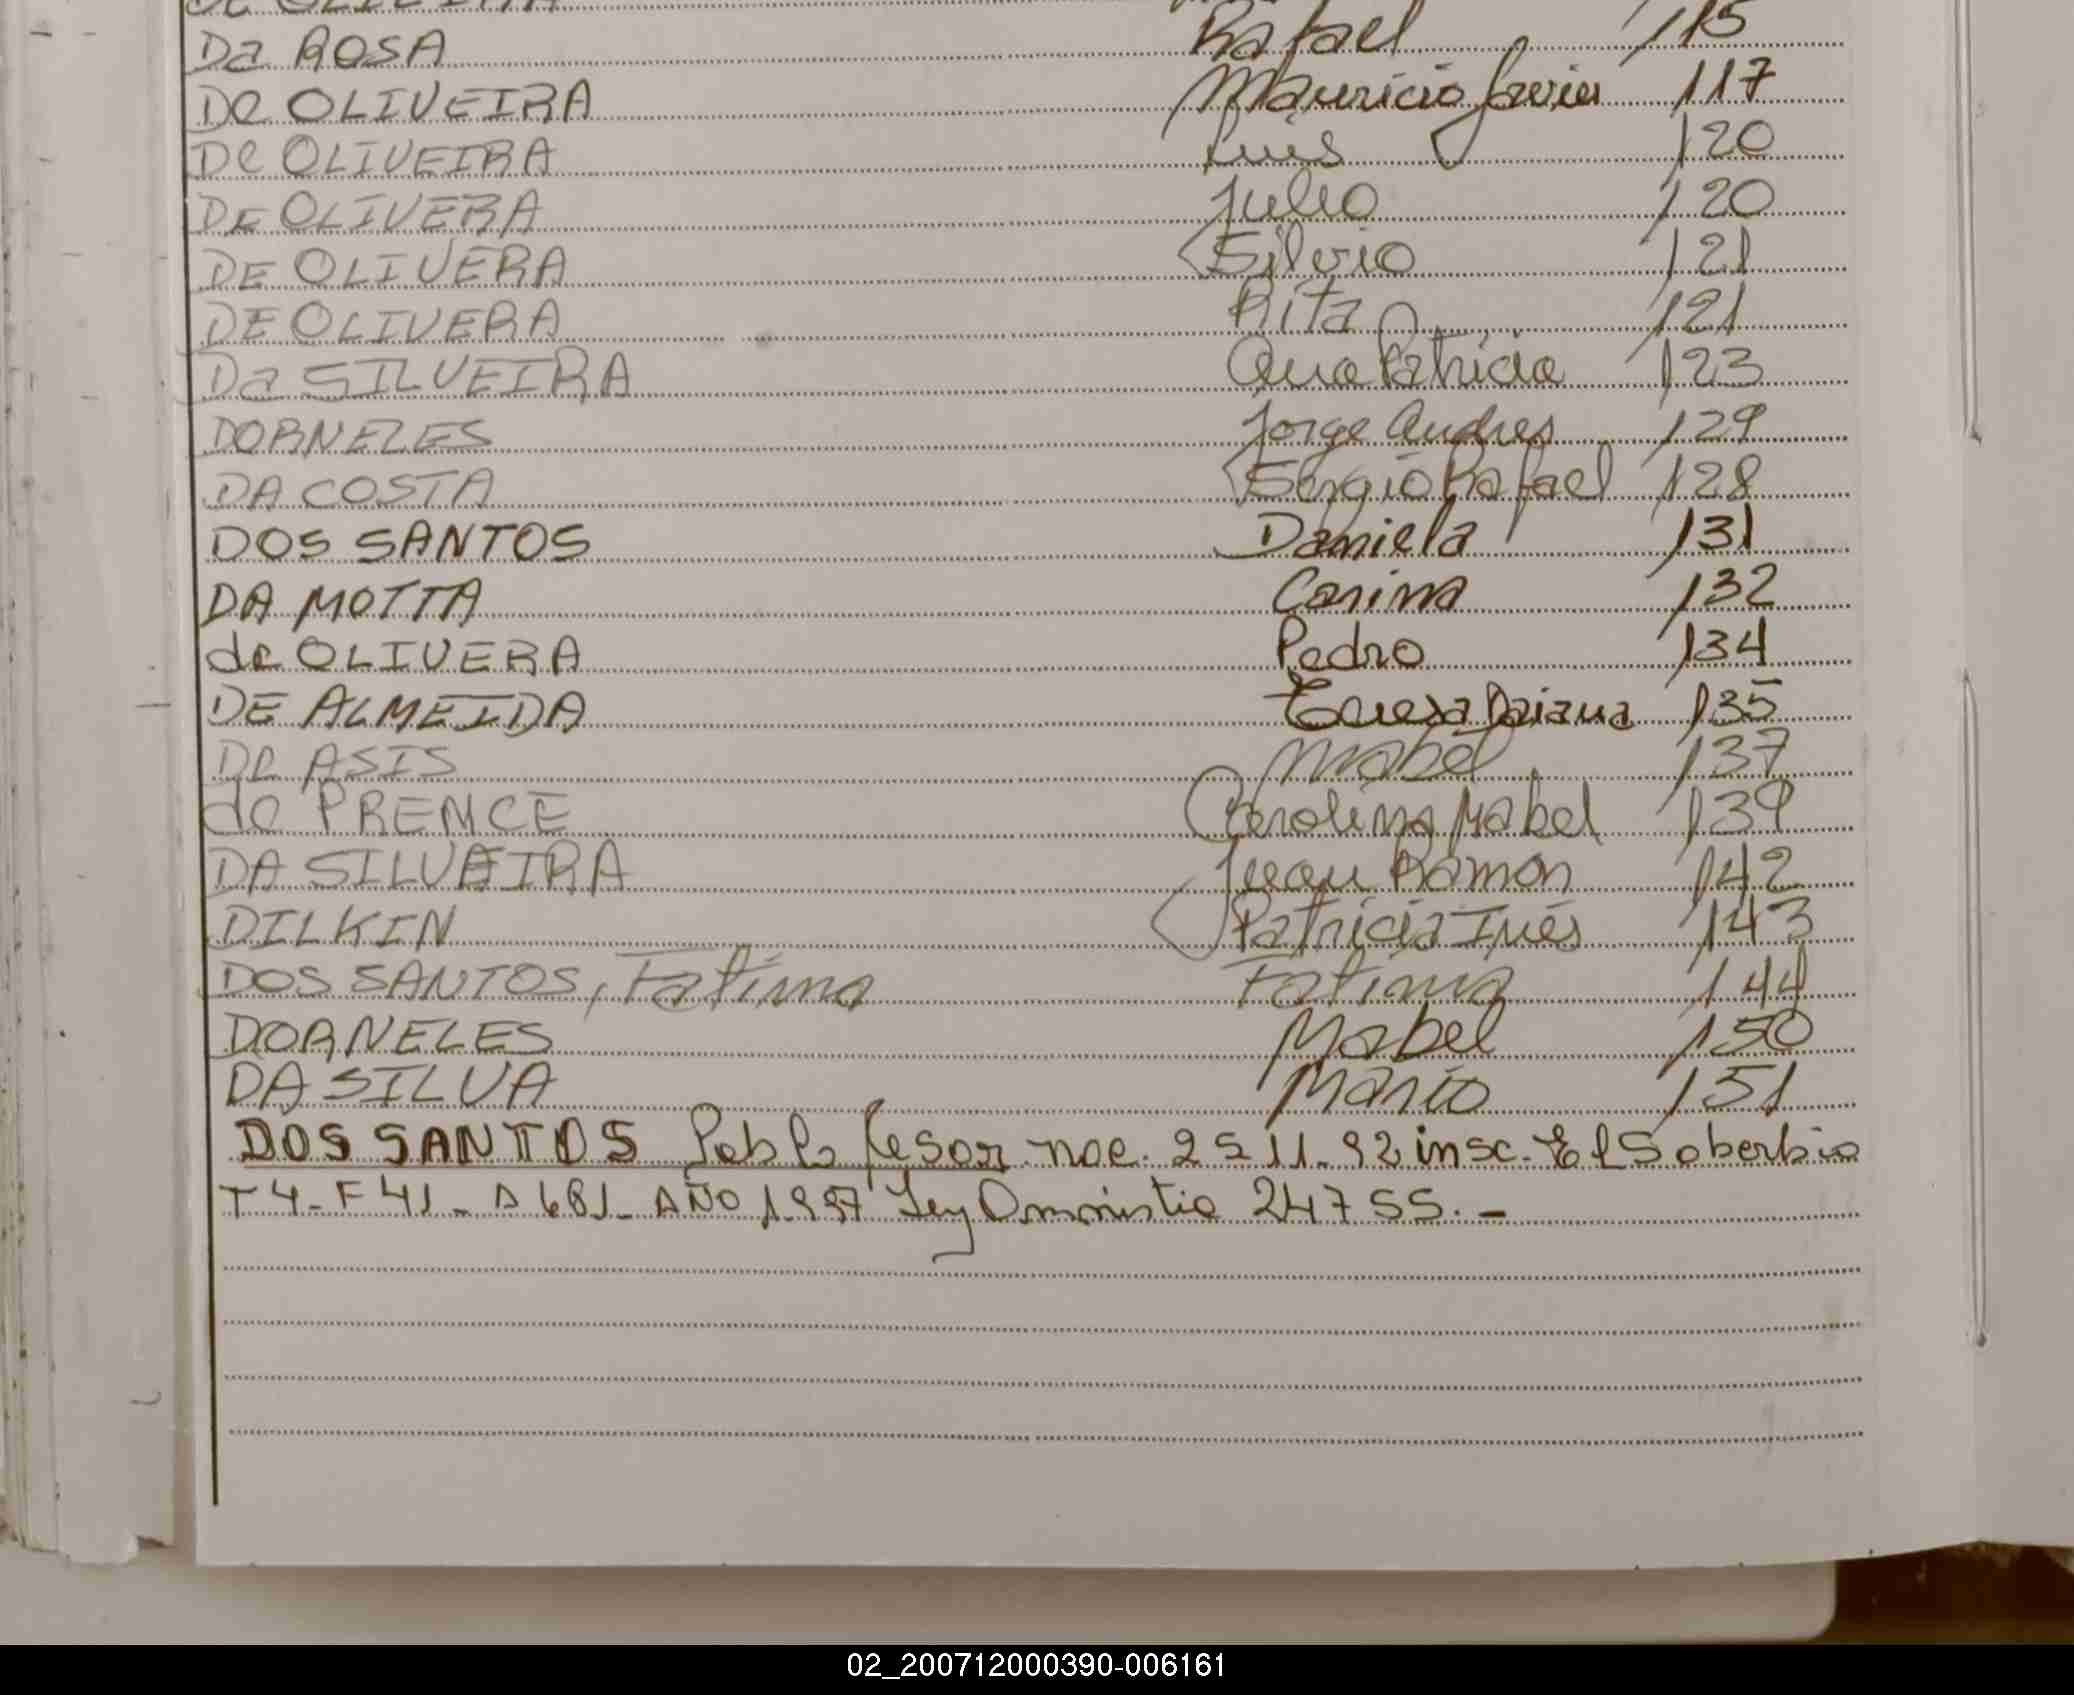 Da ROSA Rafael 115
De OLIVEIRA Mauricio Javier 117
De OLIVEIRA Luis 120
DE OLIVERA Julio 120
DE OLIVERA Silvio 121
DE OLIVERA Rita 121
Da SILVEIRA Ana Patricia 123
DORNELES Jorge Andres 129
DA COSTA Sergio Rafael 128
DOS SANTOS Daniela 131
DA MOTTA Carina 132
de OLIVERA Pedro 134
DE ALMEIDA Teresa Daiana 135
De ASIS Mabel 137
de PREMCE Carolina Mabel 139
DA SILVEIRA Juan Ramon 142
DILKIN Patricia Inés 143
DOS SANTOS, Fatima Fatima 144
DORNELES Mabel 150
DA SILVA Mario 151
DOS SANTOS Pablo Cesar nac. 25 11-92 insc. El Soberbio
T 4- F 41- A 681- AÑO 1.997 Ley Amnistia 24755.-
02_200712000390-006161